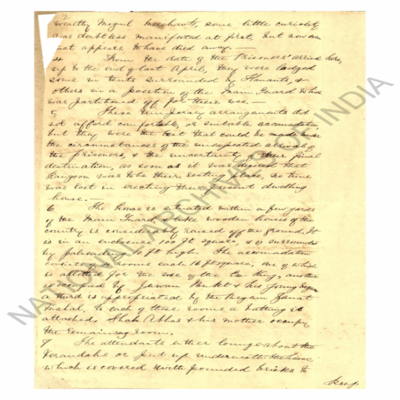 wealthy Mogul Merchants, some little curiosity
was doubtless manifested at first, but now
that appears to have died away.—
4 From the date of the Prisoners' arrival here,
up to the end of last April, they were lodged
some in tents surrounded &
others in a portion of the Main Guard which
was partitioned off for their use.—
5 These temporary arrangements did
not afford comfortable, or suitable accommodation
but they were the best that could be made under
the circumstances of the unexpected arrival of
the prisoners, & the uncertainty of their final
destination, as soon as it was decided that
Rangoon was to be their resting place, no time
was lost in erecting their present dwelling
house.—
6 The house is situated within a few yards
of the Main Guard & like wooden houses of the
country is considerably raised off the ground. It
is in an enclosure 100 ft square, & is surrounded
by palisading 10 ft high. The accommodation
consists of 4 rooms each 16 ft square, one of which
is allotted for the use of the Ex-King, another
is occupied by Jawan Bukht & his young Begum
a third is appropriated by the Begum Zeenat
Mahal, to each of these rooms a bathing is
attached. Shah Abbas & his mother occupy
the remaining room.
7 The attendants either lounge about the
Verandahs or put up underneath the house
which is covered with pounded bricks to
keep
NATIONAL ARCHIVES OF INDIA